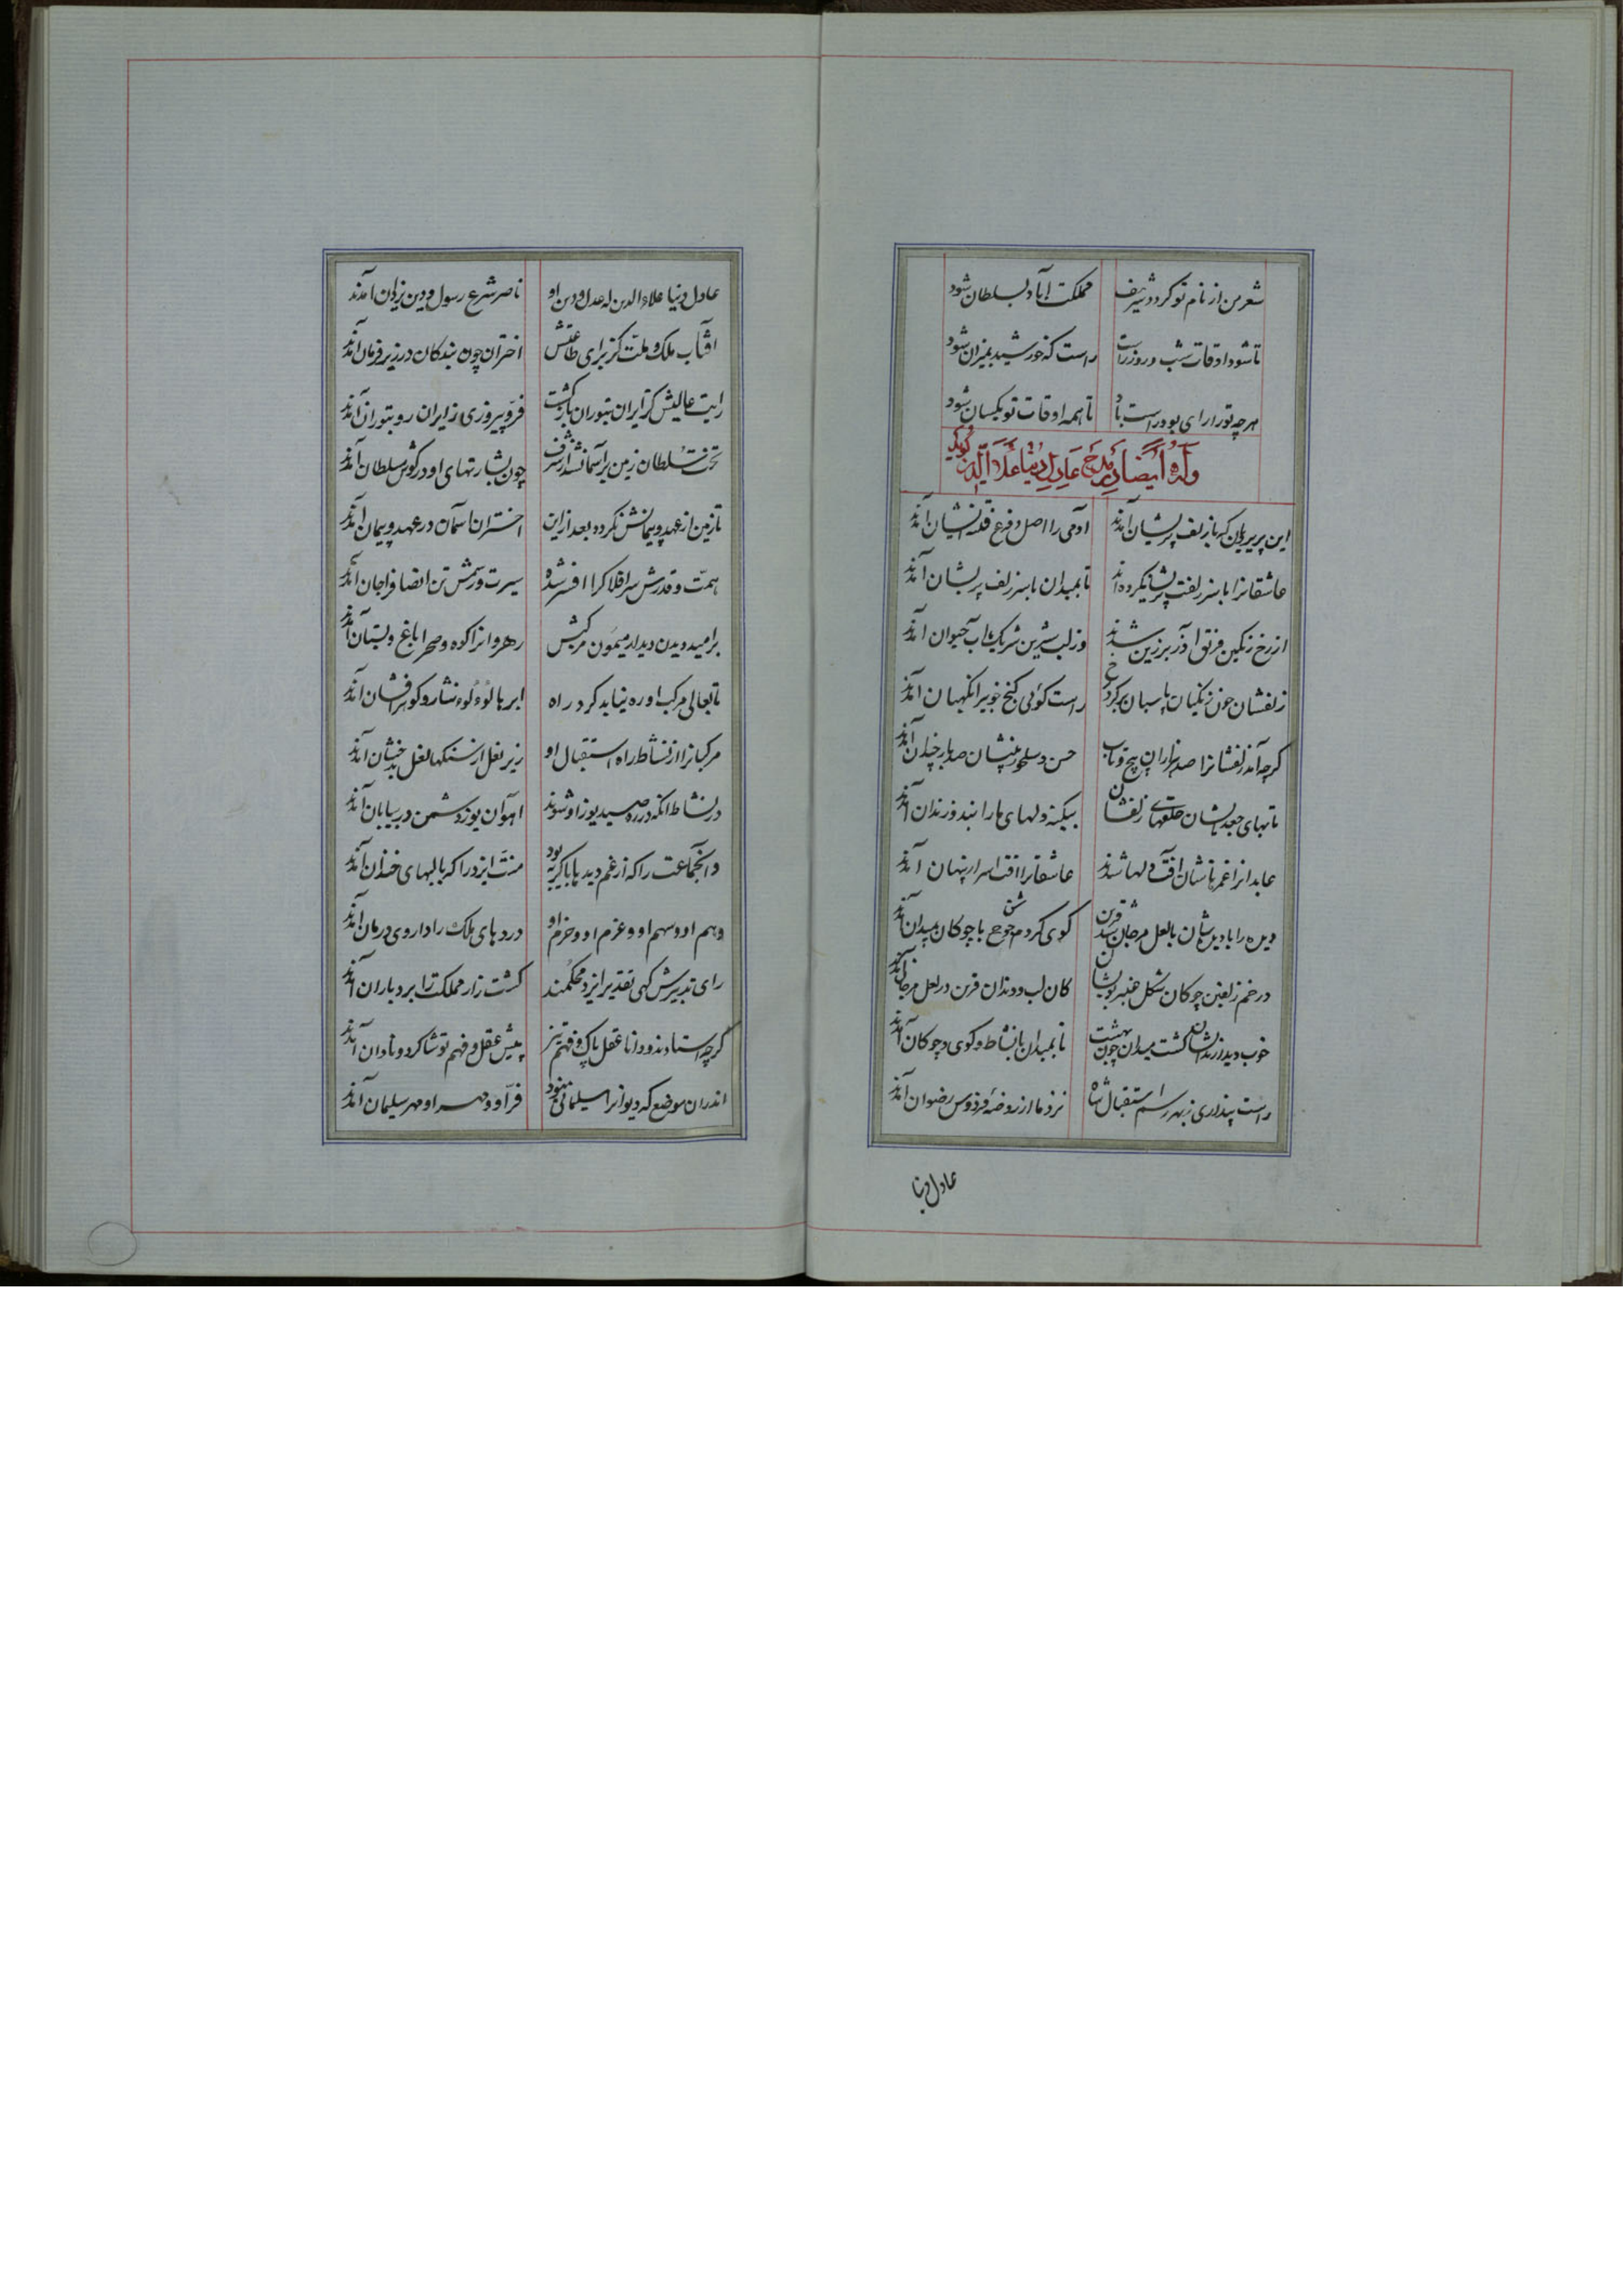 شعر من از نام تو کردد شریف مملکت آباد بسلطان شود
تا شود اوقات شب و روز راست راست که خورشید بمیزان شود
هرچه تو را رای بود راست باد تا همه اوقات تو یکسان شود
وله ایضا در مدح عادل دنیا علاء الدین کوید
این پریرویان که با زلف پریشان آمدند آدمی را اصل و فرع فتنه ایشان آمدند
عاشقانرا با سر زلفت پریشان کرده اند تا بمیدان با سر زلف پریشان آمدند
از رخ رنکین فرق آذر برزین شدند وز لب شیرین شریک آب حیوان آمدند
زلفشان چون زنکیان پاسبان بر کرد رخ راست کوئی کنج خوبیرا نکهبان آمدند
کرچه آمد زلفشانرا صد هزاران پیچ و تاب حسن و صد چندان آمدند
تابهای جعد ایشان حلقهای زلفشان بیکنه دلهای ما را بند و زندان آمدند
عابدانرا غمزهاشان آفت دلها شدند عاشقانرا آفت اسرار پنهان آمدند
با لعل و مرجان شد قرین کوی کردم با چوکان بمیدان آمدند
در خم زلفین چوکان شکل عنبر کان لب و دندان قرین در لعل و مرجان آمدند
خوب دیدار کشت میدان چون بهشت تا بمیدان با نشاط و کوی و چوکان آمدند
راست پنداری ز بهر رسم استقبال شاه نزد ما از روضه فردوس رضوان آمدند
عادل دنیا
عادل دنیا علاء الدین که عدل و دین او ناصر شرع رسول و دین یزدان آمدند
آفتاب ملک و ملت کز برای طاعتش اختران چون بندکان در زیر فرمان آمدند
رایت عالیش کز ایران بتوران بازکشت فرّ و پیروزی ز ایران رو بتوران آمدند
تخت سلطان زمین بر آسمان شد از شرف چون بشارتهای او در کوش سلطان آمدند
تا زمین از عهد و پیمانش نکردد بعد ازین اختران آسمان در عهد و پیمان آمدند
همّت و قدرش سر افلاک را افسر شده سیرت و رسمش تن انصاف را جان آمدند
بر امید دیدن دیدار میمون مرکبش رهروانرا کوه و صحرا باغ و بستان آمدند
تا بعالی مرکب او ره نیابد کرد راه ابرها لوءلوء نثار و کوهر افشان آمدند
مرکبانرا از نشاط راه استقبال او زیر نعل از سنکها لعل بدخشان آمدند
در نشاط آنکه در ره صید یوز او شوند آهوان یوز دشمن در بیابان آمدند
و آنجماعت را که از غم دیدها با کریه بود منّت ایزد را که با لبهای خندان آمدند
وهم او و سهم او و عزم او و حزم او دردهای ملک را داروی درمان آمدند
رای تدبیرش کهی تقدیر ایزد محکمند کشت زار مملکت را برد باران آمدند
کرچه استادند و دانا عقل پاک و فهم تیز پیش عقل و فهم تو شاکرد و نادان آمدند
اندران موضع که دیوانرا سلیمانی نبود فرّ او و مهر او مهر سلیمان آمدند